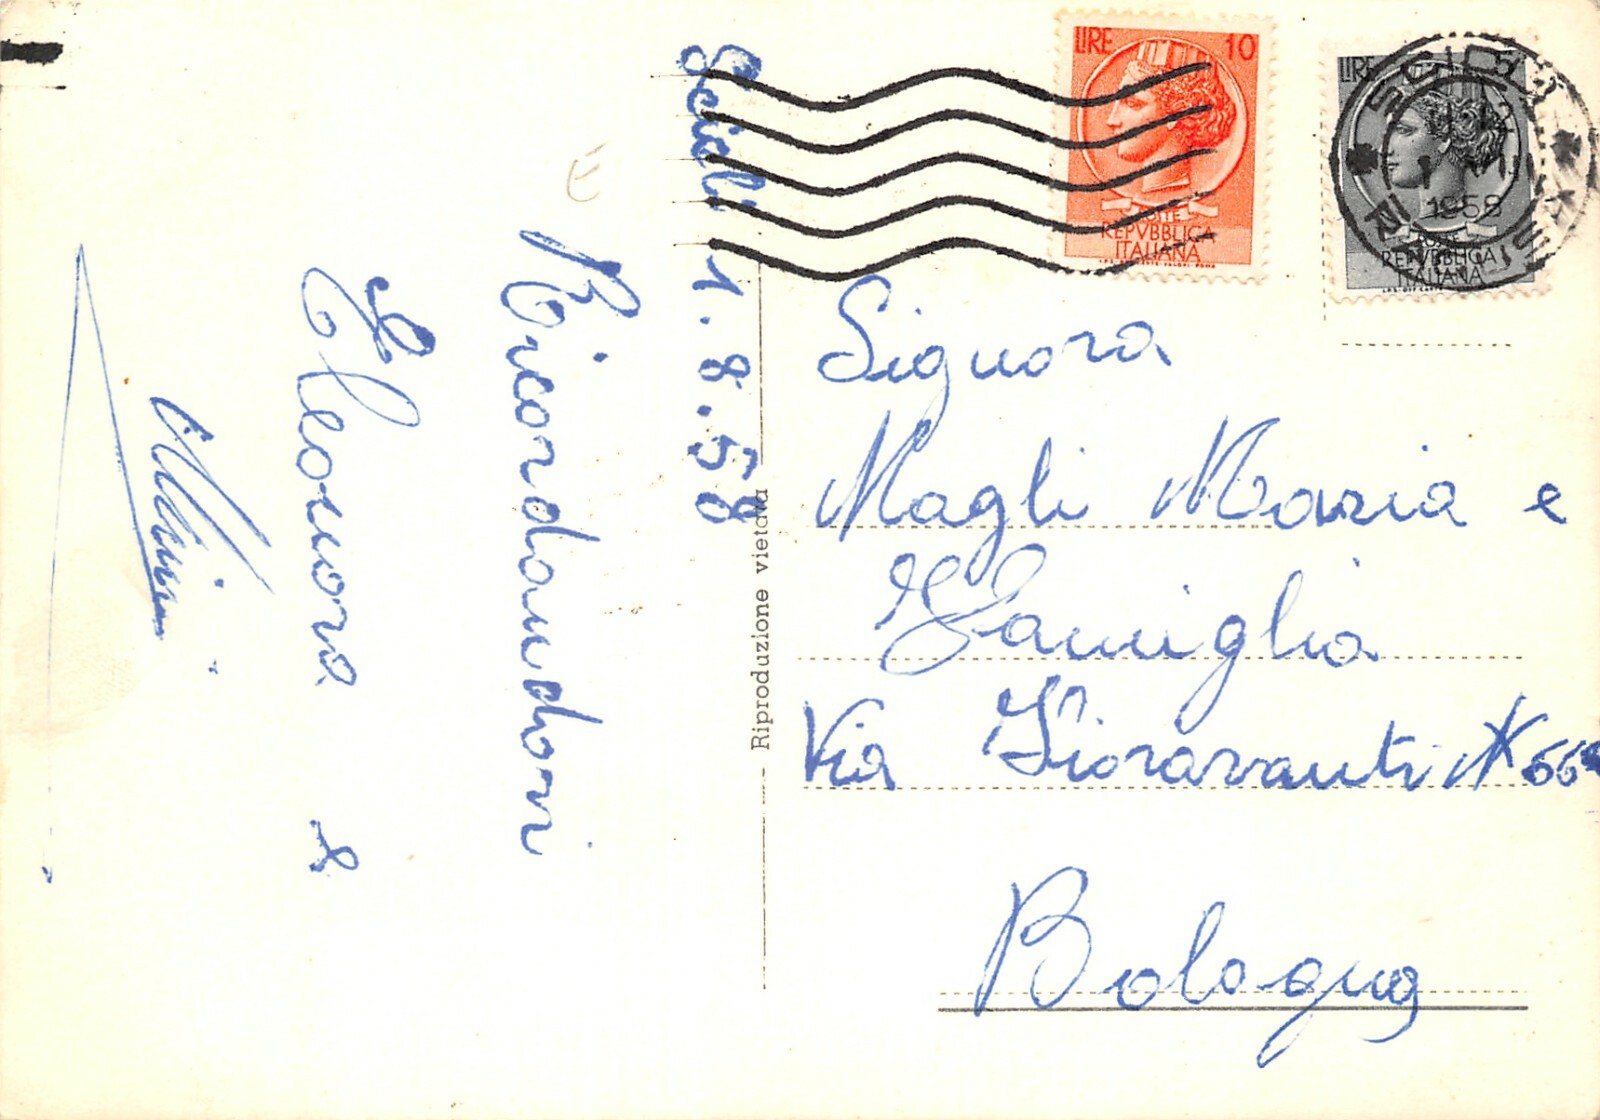 Scicli 1.8.58
Ricordandovi
Eleonora e
LIRE 10
POSTE
REPVBBLICA
ITALIANA
LIRE
POSTE
REPVBBLICA
ITALIANA
SCICLI
1958
Signora
Magli Maria e
Famiglia
Via Fioravanti N 66
Bologna
Riproduzione vietata